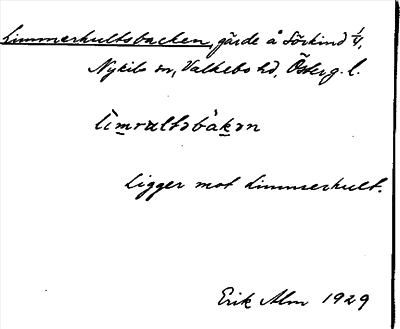 Limmerhultsbacken, gärde å Sörkind 1/4,
Nykils sn, Valkebo hd, Österg. l.
Ligger mot Limmerhult.
Erik Alm 1929